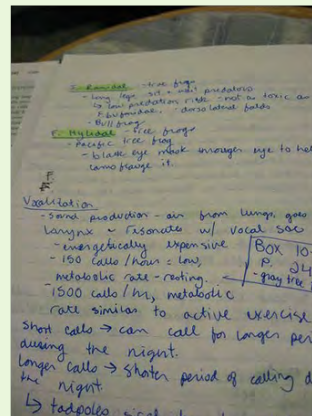 E. Ranidae - true frogs
- long legs, sit + wait predators
↳ low predation risk - not a toxic an
- dorsolateral folds
- Bullfrog
F. Hylidae - tree frogs
- Pacific tree frog
- black eye mask through eye to hel
camoflauge it.
Vocalization
- sound production - air from lungs, goes
Larynx ~ resonate w/ vocal sac
- energetically expensive
- 150 calls / hour = low,
metabolic rate - resting.
- 1500 calls / hr, metabolic
rate similar to active exercise
BOX 10-
P. 24
- gray tree
Short calls → can call for longer peri
during the night.
Longer calls → shorter period of calling d
the night.
↳ tadpoles